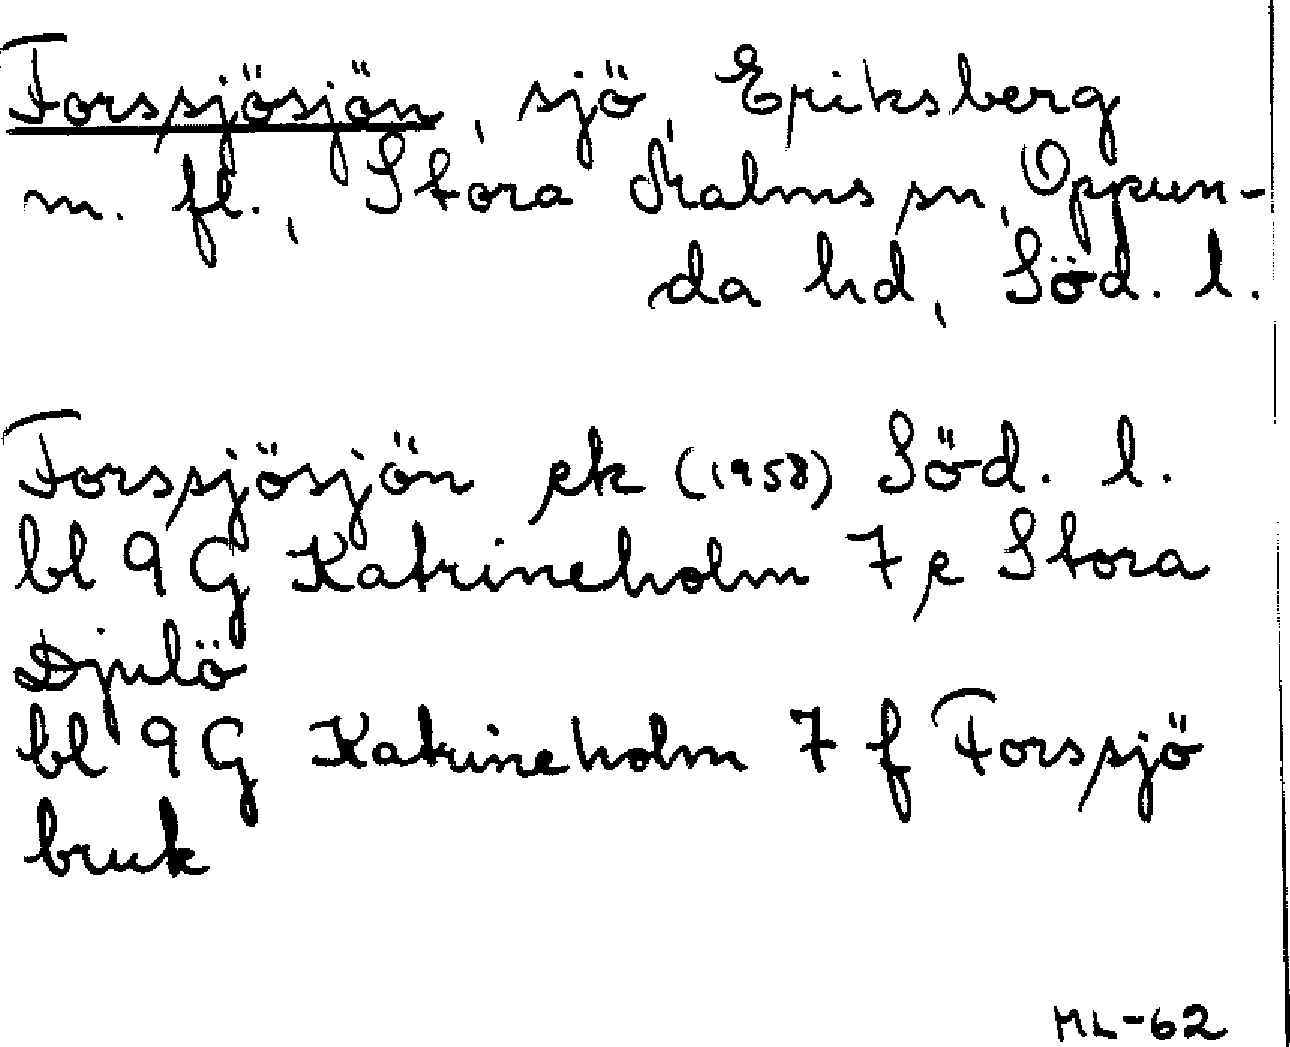 Forssjösjön, sjö, Eriksberg
m. fl., Stora Malms sn, Oppun-
da hd, Söd. l.
Forssjösjön ek (1958) Söd. l.
bl 9 G Katrineholm 7 e Stora
Djulö
bl 9 G Katrineholm 7 f Forssjö
bruk
ML-62